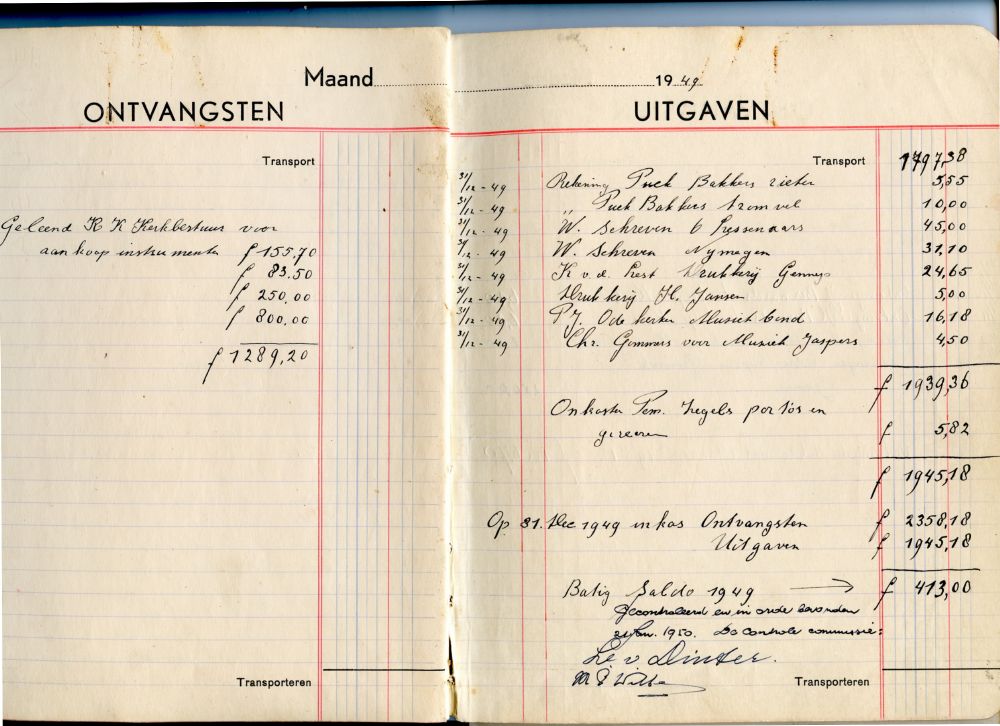 Maand 1949
ONTVANGSTEN
Transport
Geleend R K Kerkbestuur voor
aankoop instrumenten f 155.70
f 83.50
f 250.00
f 800.00
f 1289,20
Transporteren
UITGAVEN
Transport 1797,38
31/12 - 49 Rekening Puck Bakkers 5,55
31/12 - 49 ,, Puck Bakkers tromvel 10,00
31/12 - 49 W. Schreven 6 Lessenaars 45,00
31/12 - 49 W. Schreven Nymegen 31,10
31/12 - 49 K v.d. Drukkerij Gennep 24,65
31/12 - 49 Drukkerij H. Jansen 5,00
31/12 - 49 P.J. Odekerken Musiek bond 16,18
31/12 - 49 Chr. Gommers voor Musiek Jaspers 4,50
f 1939,36
Onkosten Pen. Zegels portos en
gireeren f 5,82
f 1945,18
Op 31. Dec 1949 in kas Ontvangsten f 2358,18
Uitgaven f 1945,18
Batig Saldo 1949 → f 413,00
Gecontroleerd en in orde bevonden
Jan. 1950. De controle commissie:
v Dinter.
Transporteren